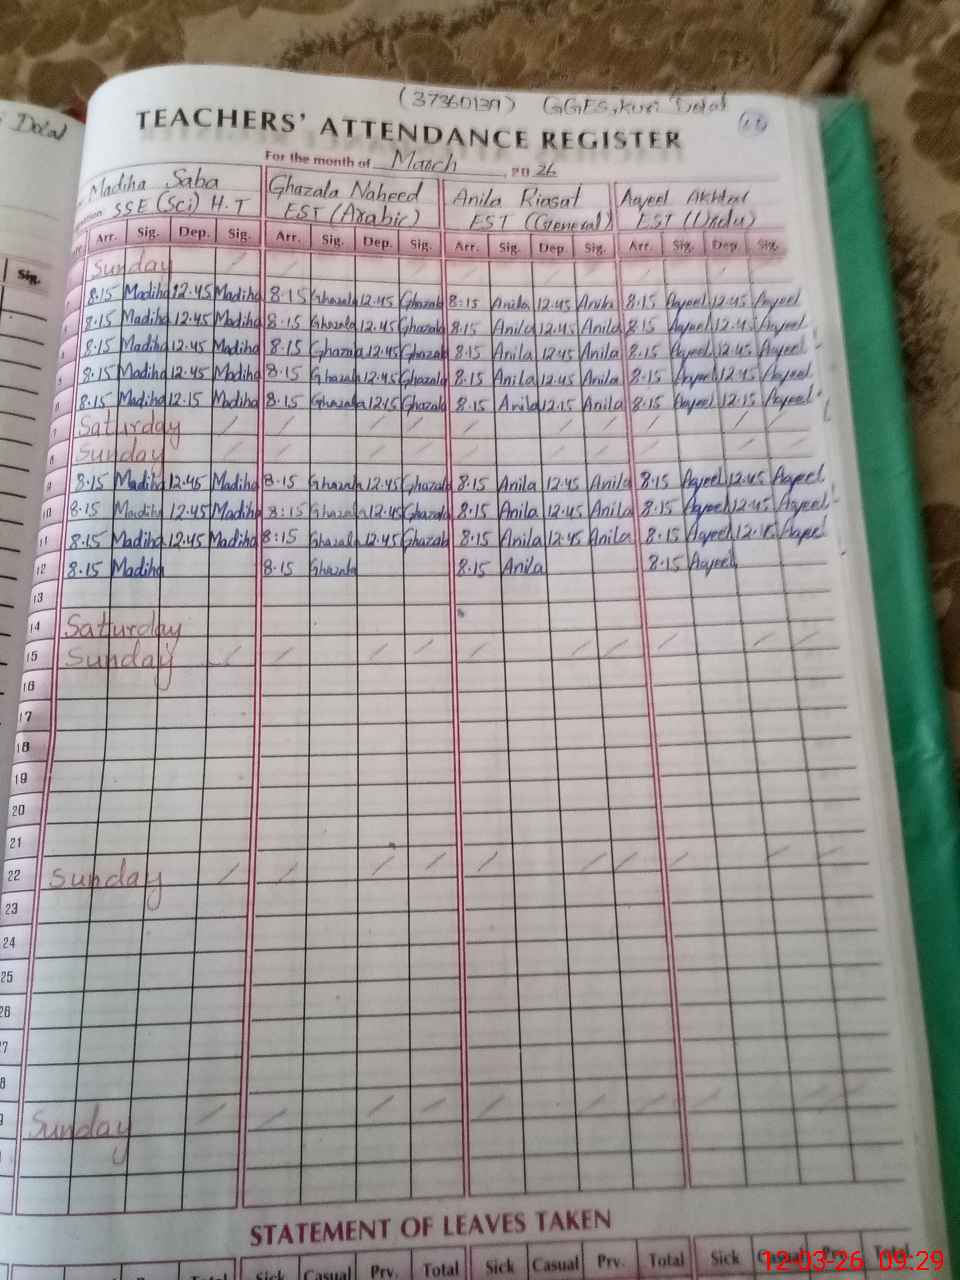 Dotal
(37360139) GGES, Kuri Dolal
TEACHERS' ATTENDANCE REGISTER
For the month of March, 20 26
Madiha Saba Ghazala Naheed Anila Riasat Aqeel Akhtar
SSE (Sci) H.T EST (Arabic) EST (General) EST (Urdu)
Sig. Arr. Sig. Dep. Sig. Arr. Sig. Dep. Sig. Arr. Sig. Dep. Sig. Arr. Sig. Dep. Sig.
Sunday
8.15 Madiha 12.45 Madiha 8.15 Ghazala 12.45 Ghazala 8:15 Anila 12.45 Anila 8.15 Aqeel 12.45 Aqeel
8.15 Madiha 12.45 Madiha 8.15 Ghazala 12.45 Ghazala 8.15 Anila 12.45 Anila 8.15 Aqeel 12.45 Aqeel
8.15 Madiha 12.45 Madiha 8.15 Ghazala 12.45 Ghazala 8.15 Anila 12.45 Anila 8.15 Aqeel 12.45 Aqeel
8.15 Madiha 12.45 Madiha 8.15 Ghazala 12.45 Ghazala 8.15 Anila 12.45 Anila 8.15 Aqeel 12.45 Aqeel
8.15 Madiha 12.15 Madiha 8.15 Ghazala 12.15 Ghazala 8.15 Anila 12.15 Anila 8.15 Aqeel 12.15 Aqeel
7 Saturday
8 Sunday
9 8.15 Madiha 12.45 Madiha 8.15 Ghazala 12.45 Ghazala 8.15 Anila 12.45 Anila 8.15 Aqeel 12.45 Aqeel
10 8.15 Madiha 12.45 Madiha 8:15 Ghazala 12.45 Ghazala 8.15 Anila 12.45 Anila 8.15 Aqeel 12.45 Aqeel
11 8.15 Madiha 12.45 Madiha 8:15 Ghazala 12.45 Ghazala 8.15 Anila 12.45 Anila 8.15 Aqeel 12.45 Aqeel
12 8.15 Madiha 8.15 Ghazala 8.15 Anila 8.15 Aqeel
13
14 Saturday
15 Sunday
16
17
18
19
20
21
22 Sunday
23
24
25
26
7
8
9 Sunday
STATEMENT OF LEAVES TAKEN
Total Sick Casual Prv. Total Sick Casual Prv. Total Sick Casual Prv. Total
12-03-26 09:29